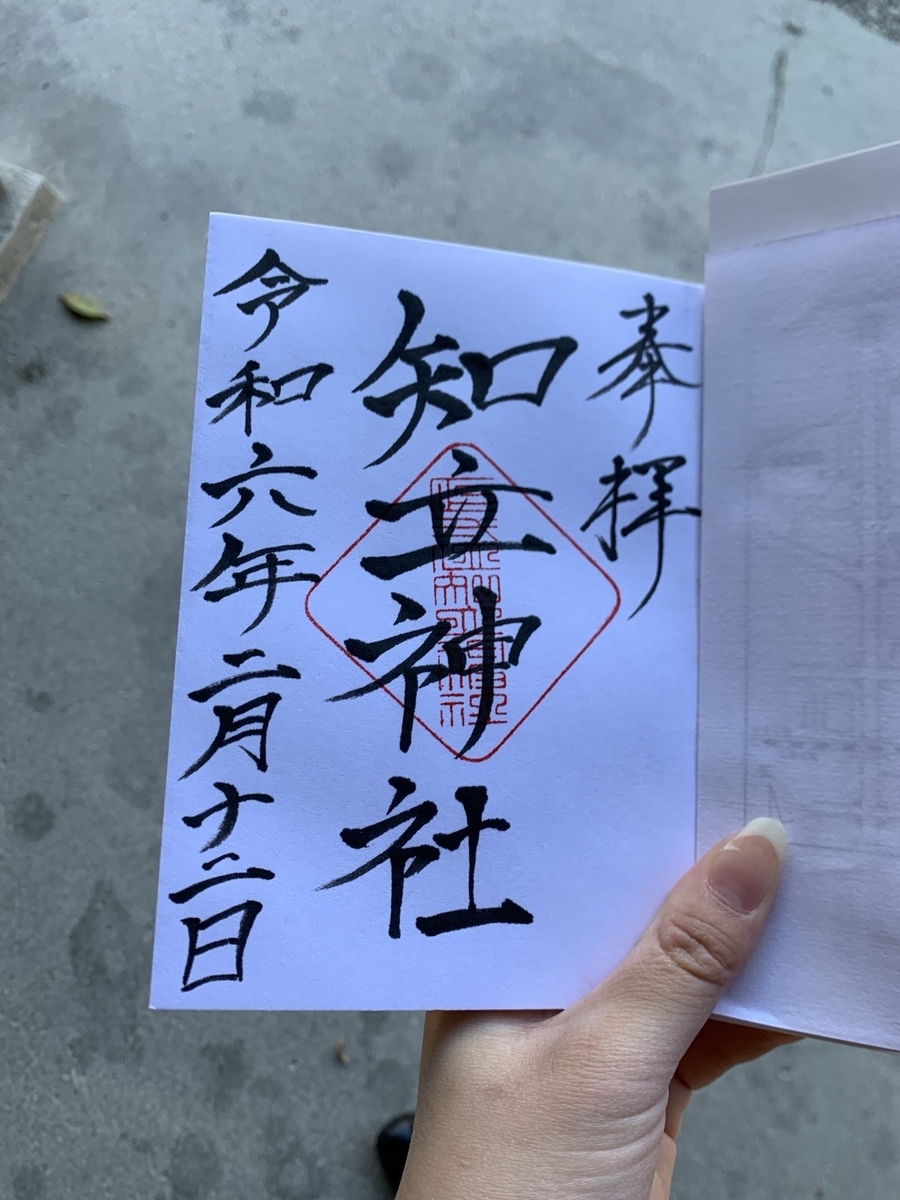 奉拝
知立神社
令和六年二月十二日